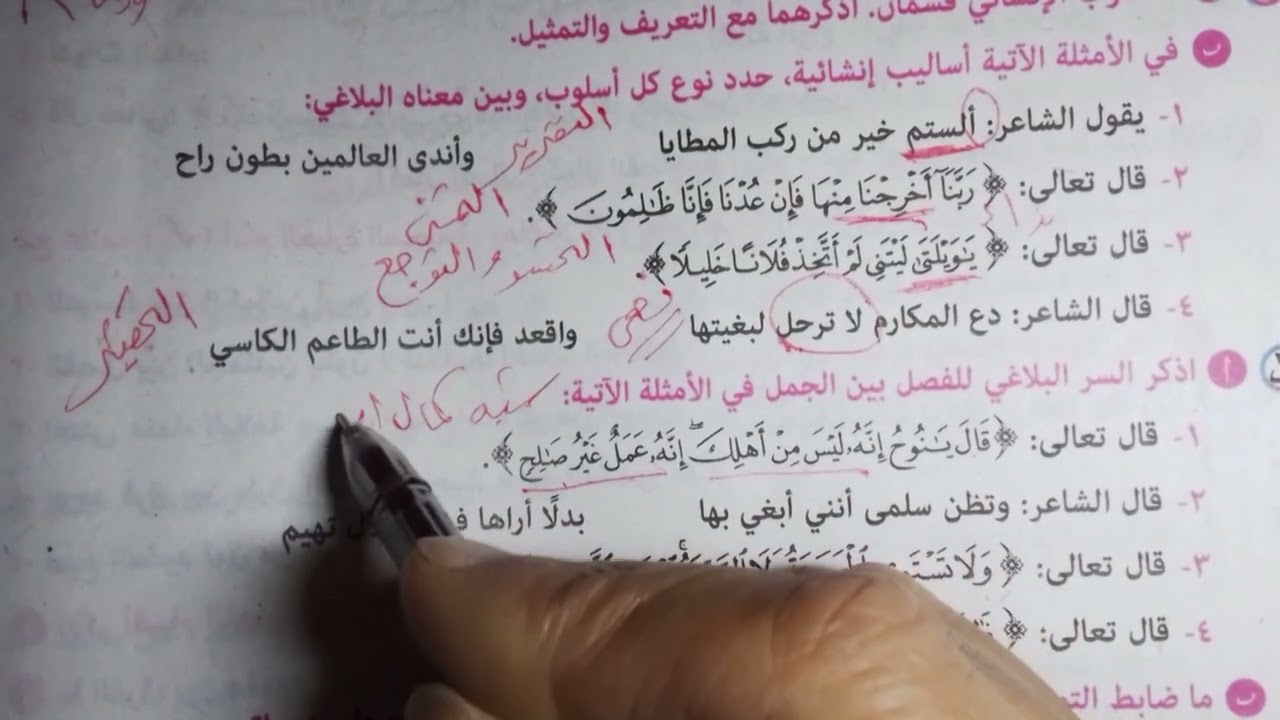 الإنشائي قسمان. اذكرهما مع التعريف والتمثيل.
ب في الأمثلة الآتية أساليب إنشائية، حدد نوع كل أسلوب، وبين معناه البلاغي:
١- يقول الشاعر: ألستم خير من ركب المطايا وأندى العالمين بطون راح
التقرير
٢- قال تعالى: ﴿ رَبَّنَآ أَخْرِجْنَا مِنْهَا فَإِنْ عُدْنَا فَإِنَّا ظَٰلِمُونَ ﴾.
التمني
٣- قال تعالى: ﴿ يَٰوَيْلَتَىٰ لَيْتَنِى لَمْ أَتَّخِذْ فُلَانًا خَلِيلًا ﴾.
التحسر والتوجع
٤- قال الشاعر: دع المكارم لا ترحل لبغيتها واقعد فإنك أنت الطاعم الكاسي
نهى
التحقير
أ اذكر السر البلاغي للفصل بين الجمل في الأمثلة الآتية:
شبه كمال
١- قال تعالى: ﴿ قَالَ يَٰنُوحُ إِنَّهُۥ لَيْسَ مِنْ أَهْلِكَ ۖ إِنَّهُۥ عَمَلٌ غَيْرُ صَٰلِحٍ ﴾.
٢- قال الشاعر: وتظن سلمى أنني أبغي بها بدلًا أراها تهيم
٣- قال تعالى: ﴿ وَلَا
٤- قال تعالى: ﴿
ب ما ضابط